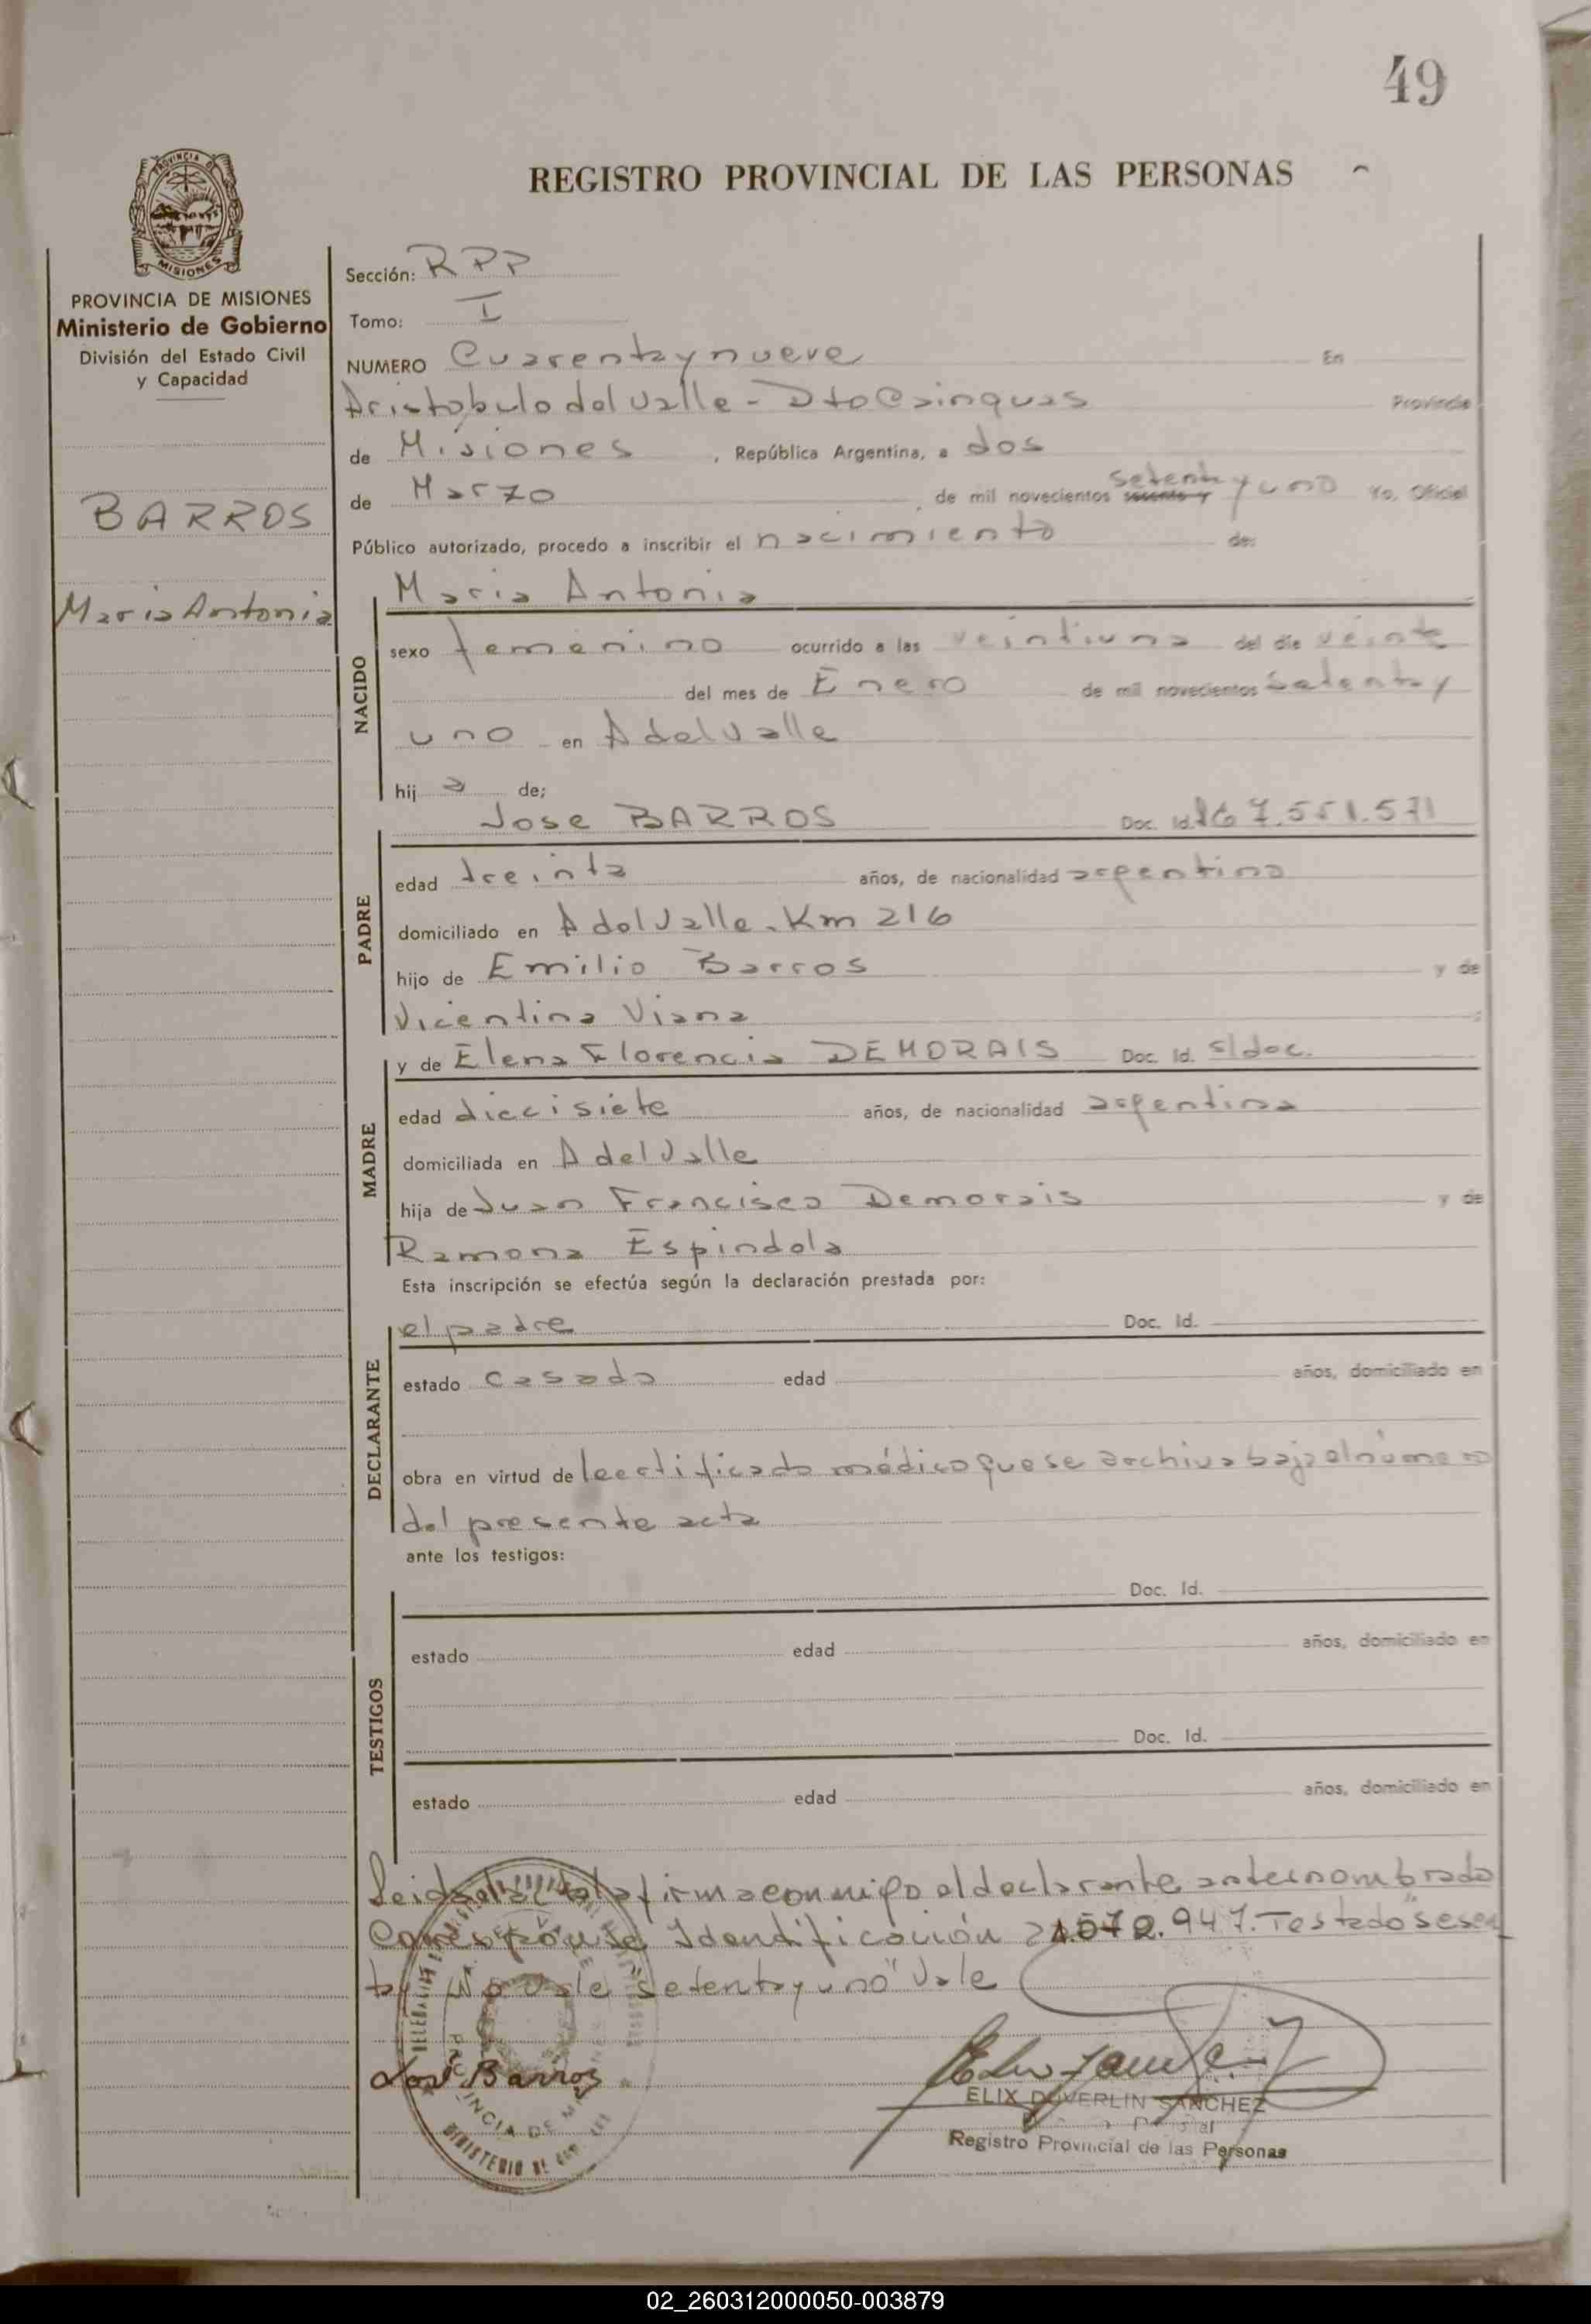 49
REGISTRO PROVINCIAL DE LAS PERSONAS
PROVINCIA DE
MISIONES
PROVINCIA DE MISIONES
Ministerio de Gobierno
División del Estado Civil
y Capacidad
BARROS
Maria Antonia
Sección: RPP
Tomo: I
NUMERO Cuarenta y nueve En
Aristobulo del Valle - Dto Cainguas Provincia
de Misiones, República Argentina, a dos
de Marzo, de mil novecientos sesenta y setenta y uno Yo, Oficial
Público autorizado, procedo a inscribir el nacimiento de:
Maria Antonia
NACIDO
sexo femenino ocurrido a las veintiuna del día veinte
del mes de Enero de mil novecientos setenta y
uno en A del Valle
hij a de;
PADRE
Jose BARROS Doc. Id. 7.551.571
edad treinta años, de nacionalidad argentina
domiciliado en A del Valle. Km 216
hijo de Emilio Barros y de
Vicentina Viana
MADRE
y de Elena Florencia DEMORAIS Doc. Id. s/doc.
edad diecisiete años, de nacionalidad argentina
domiciliada en A del Valle
hija de Juan Francisco Demorais y de
Ramona Espindola
Esta inscripción se efectúa según la declaración prestada por:
DECLARANTE
el padre Doc. Id.
estado casado edad años, domiciliado en
obra en virtud de certificado médico que se archiva bajo el número
del presente acta
ante los testigos:
TESTIGOS
Doc. Id.
estado edad años, domiciliado en
Doc. Id.
estado edad años, domiciliado en
Leida el acta la firma conmigo el declarante antes nombrado
Corresponde Identificación 21.072.947. Testado "sesen
ta y" No vale "setenta y uno" Vale
José Barros
PROVINCIA DE MISIONES
MINISTERIO DE
ELIX DUVERLIN SANCHEZ
Registro Provincial de las Personas
02_260312000050-003879